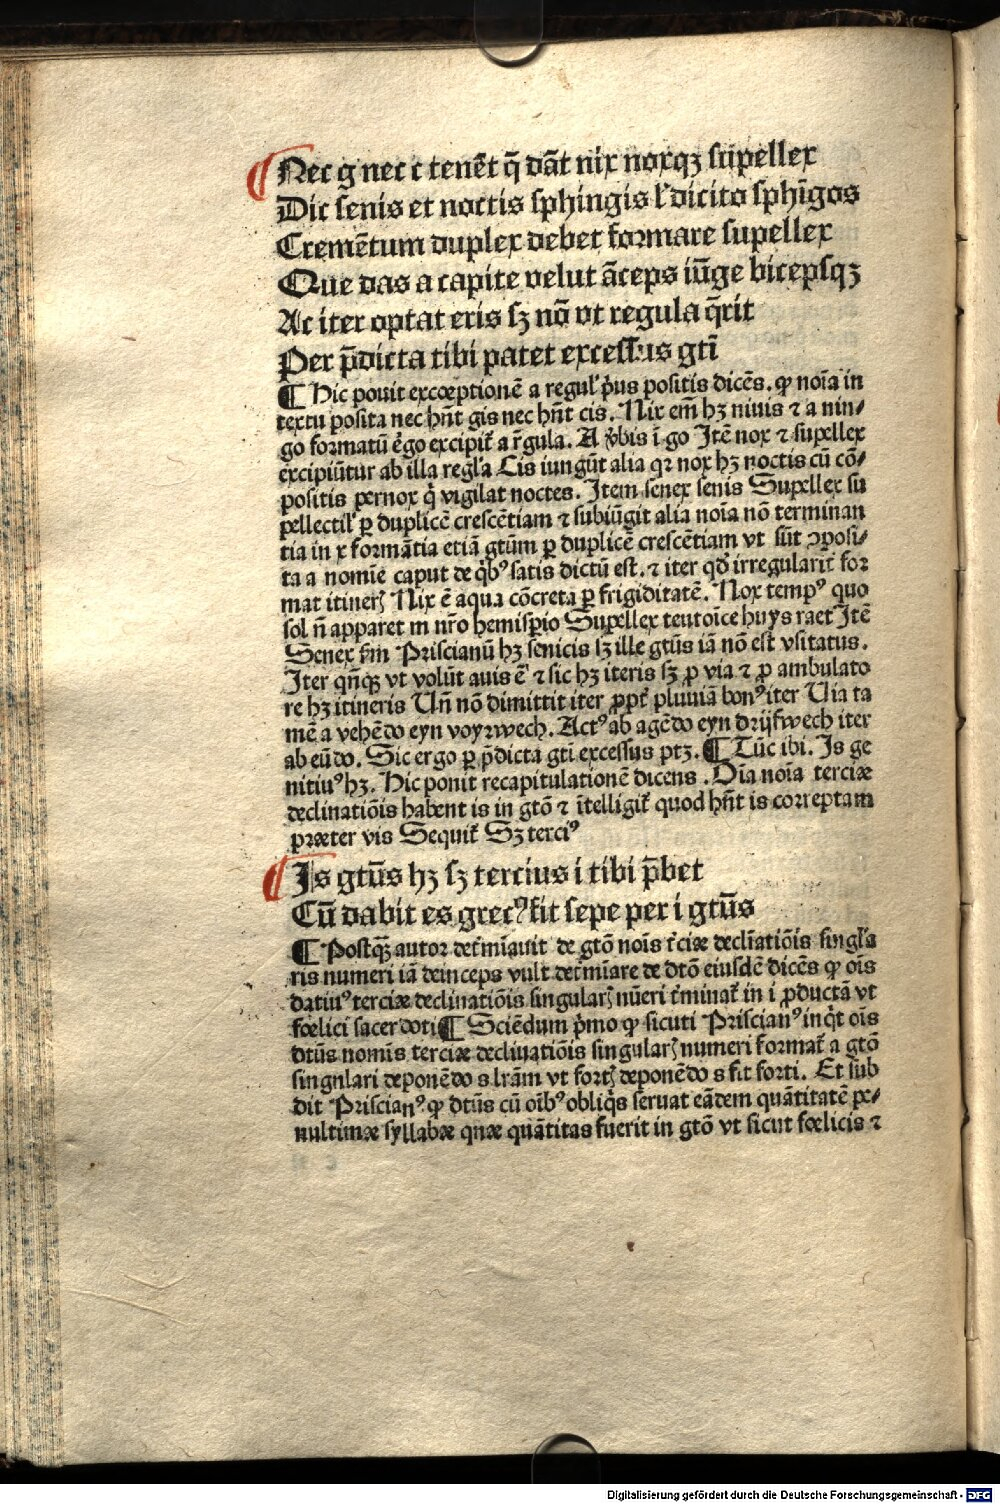 Nec g nec c tenēt q̄ dāt nix noxqꝫ supellex
Dic senis et noctis sphingis lˀ dicito sphīgos
Cremētum duplex debet formare supellex
Que das a capite velut āceps iūge bicepsqꝫ
Ac iter optat eris sꝫ nō vt regula q̄rit
Per p̄dicta tibi patet excessus gti̅
¶ Hic ponit excœptionē a regul' p̱us positis dicēs. ꝙ noīa in
textu posita nec hn̄t gis nec hn̄t cis. Nix em̄ hꝫ niuis ⁊ a nin⸗
go formatū ergo excipit̄ a r̄gula. A v̄bis ī go Itē nox ⁊ supellex
excipiūtur ab illa regl'a Cis iungūt alia qꝛ nox hꝫ noctis cū cō⸗
positis pernox q̇ vigilat noctes. Item senex senis Supellex su
pellectil' ꝑ duplicē crescētiam ⁊ subiūgit alia noīa nō terminan
tia in x formātia etiā gtūm ꝑ duplicē crescētiam vt sūt ꝯposi⸗
ta a nomīe caput de q̇bꝰ satis dictū est. ⁊ iter qd̕ irregularit̄ for
mat itinerꝭ Nix ē aqua cōcreta ꝑ frigiditatē. Nox tempꝰ quo
sol n̄ apparet in nr̄o hemisp̱io Supellex teutoīce huysraet Itē
Senex scd̄m Priscianū hꝫ senicis sꝫ ille gtūs iā nō est vsitatus.
Iter qn̄qꝫ vt volūt auis ē ⁊ sic hꝫ iteris sꝫ ꝓ via ⁊ ꝓ ambulato
re hꝫ itineris Un̄ nō dimittit iter ꝓpt̄ pluuiā bonꝰ iter Uia ta
mē a vehēdo eyn voyrwech. Actꝰ ab agēdo eyn drijfwech iter
ab eūdo. Sic ergo ꝑ p̄dicta gti̅ excessus ptꝫ. ¶ Tūc ibi. Is ge
nitiuꝰ hꝫ. Hic ponit recapitulationē dicens. Oīa noīa terciæ
declinatiōis habent is in gtō ⁊ ītelligit̄ quod hn̄t is correptam
præter vis Sequit̄ Sꝫ terciꝰ
Is gtūs hꝫ sꝫ tercius i tibi p̄bet
Cū dabit es grecꝰ fit sepe per i gtūs
¶ Postqꝫ autor det̄mīauit de gtō noīs t̄ciæ declīatiōis singl'a
ris numeri iā deinceps vult det̄mīare de dtō eiusdē dicēs ꝙ oīs
datiuꝰ terciæ declinatiōis singularꝭ nūeri t̄minat̄ in i ꝓductā vt
fœlici sacerdoti ¶ Sciēdum p̱mo ꝙ sicuti Priscianꝰ inq̇t oīs
dtūs nomīs terciæ declinatiōis singularꝭ numeri format̄ a gtō
singnlari deponēdo s lrām vt fortꝭ deponēdo s fit forti. Et sub
dit Priscianꝰ ꝙ dtūs cū oībꝰ obliq̇s seruat eādem quātitatē pe⸗
nultimæ syllabæ quæ quātitas fuerit in gtō vt sicut fœlicis ⁊
Digitalisierung gefördert durch die Deutsche Forschungsgemeinschaft - DFG